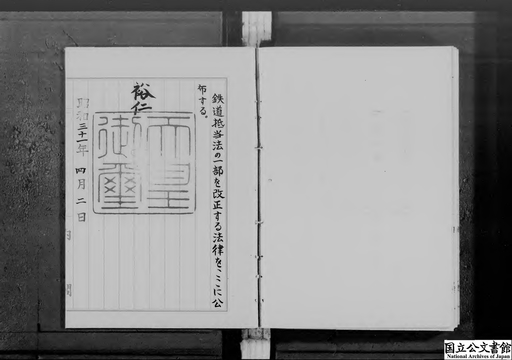 鉄道抵当法の一部を改正する法律をここに公
布する。
裕仁
天皇
御璽
昭和三十一年四月二日
国立公文書館
National Archives of Japan